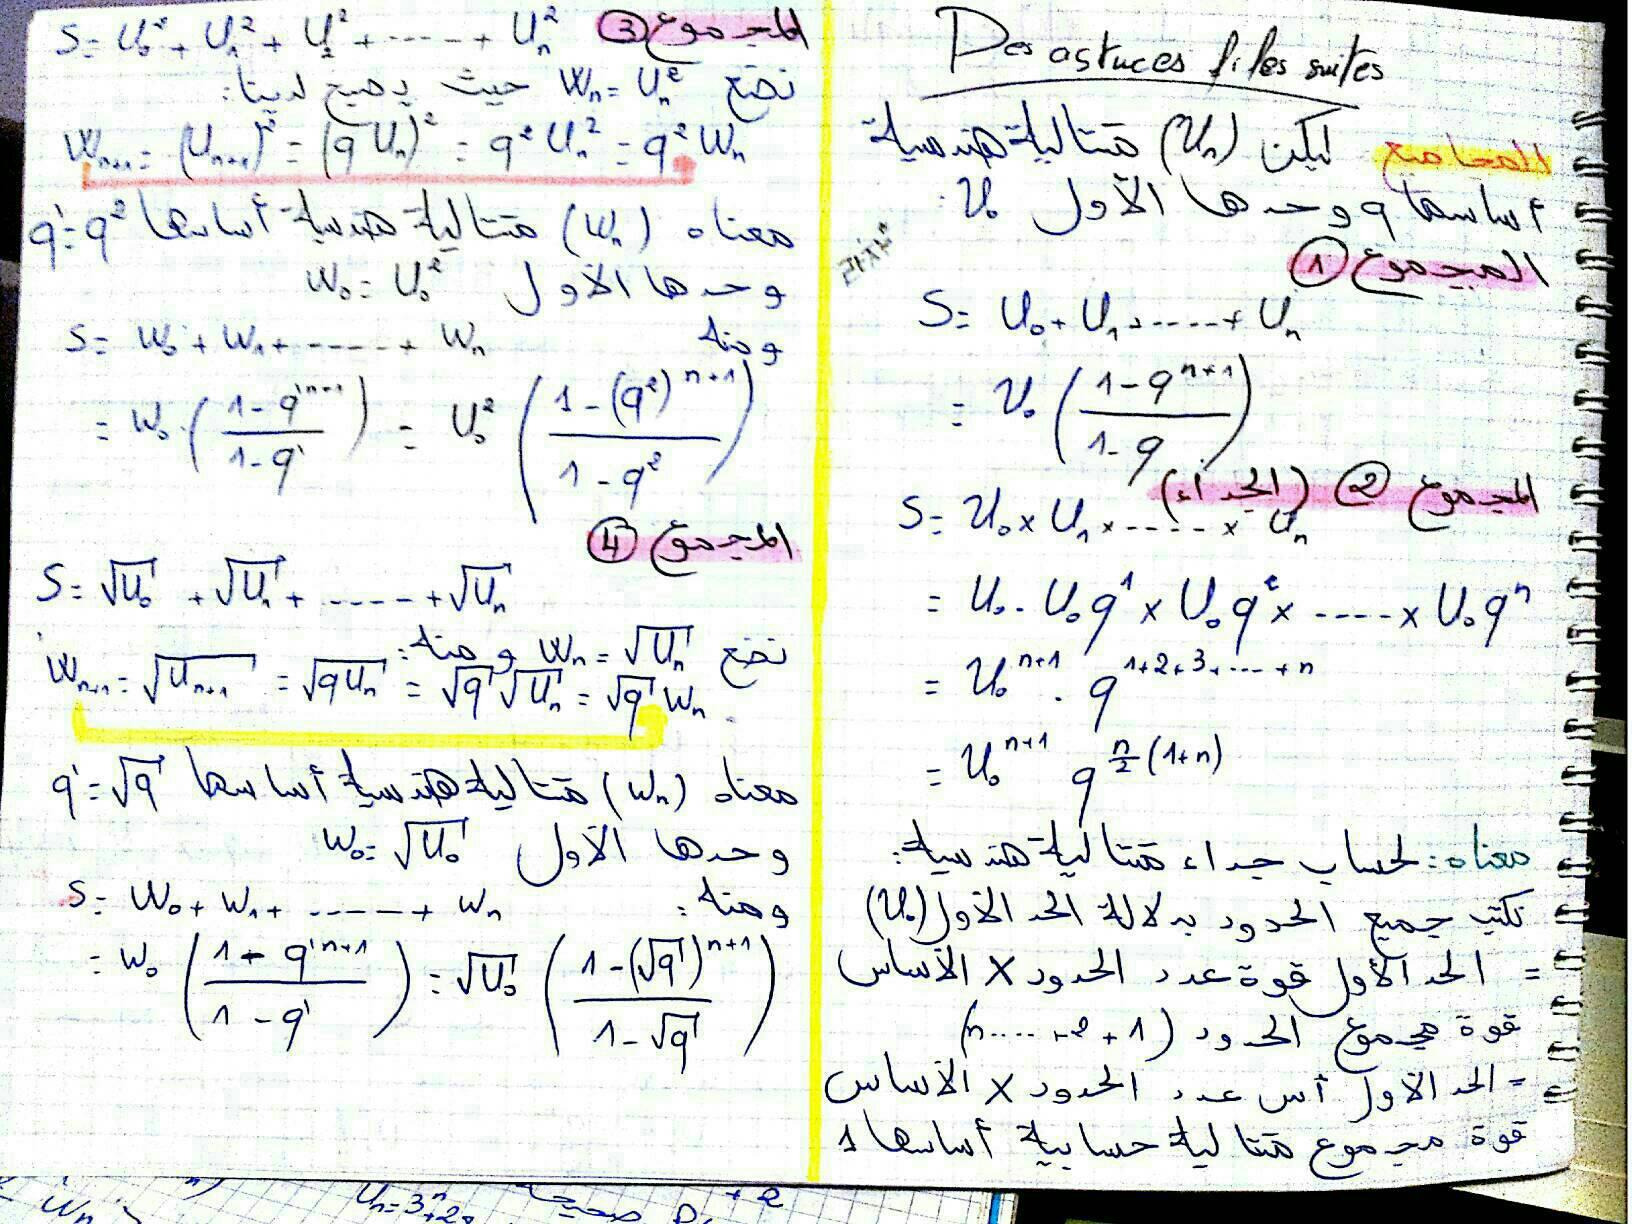 Des astuces p. les suites
المجاميع ليكن (Un) متتالية هندسية
أساسها q وحدها الأول U₀
المجموع ①
S= U₀ + U₁ + ..... + Un
= U₀ ( (1-q^(n+1)) / (1-q) )
المجموع ② (الجداء)
S= U₀ × U₁ × ..... × Un
= U₀ . U₀q¹ × U₀q² × ..... × U₀qⁿ
= U₀^(n+1) . q^(1+2+3+....+n)
= U₀^(n+1) q^(n/2 (1+n))
معناه: لحساب جداء متتالية هندسية:
نكتب جميع الحدود بدلالة الحد الأول (U₀)
= الحد الأول قوة عدد الحدود X الأساس
قوة مجموع الحدود (1 + 2 + ..... n)
= الحد الأول أس عدد الحدود X الأساس
قوة مجموع متتالية حسابية أساسها 1
المجموع ③ S= U₀² + U₁² + U₂² + ..... + Un²
نضع Wn= Un² حيث يصبح لدينا:
Wn+1 = (Un+1)² = (q Un)² = q² Un² = q² Wn
معناه (Wn) متتالية هندسية أساسها q'=q²
وحدها الأول W₀= U₀²
ومنه S= W₀ + W₁ + ..... + Wn
= W₀ ( (1-q'^(n+1)) / (1-q') ) = U₀² ( (1-(q²)^(n+1)) / (1-q²) )
المجموع ④
S= √U₀ + √U₁ + ..... + √Un
نضع Wn= √Un ومنه:
Wn+1= √Un+1 = √qUn = √q √Un = √q Wn
معناه (Wn) متتالية هندسية أساسها q'=√q
وحدها الأول W₀= √U₀
ومنه: S= W₀ + W₁ + ..... + Wn
= W₀ ( (1-q'^(n+1)) / (1-q') ) = √U₀ ( (1-(√q)^(n+1)) / (1-√q) )